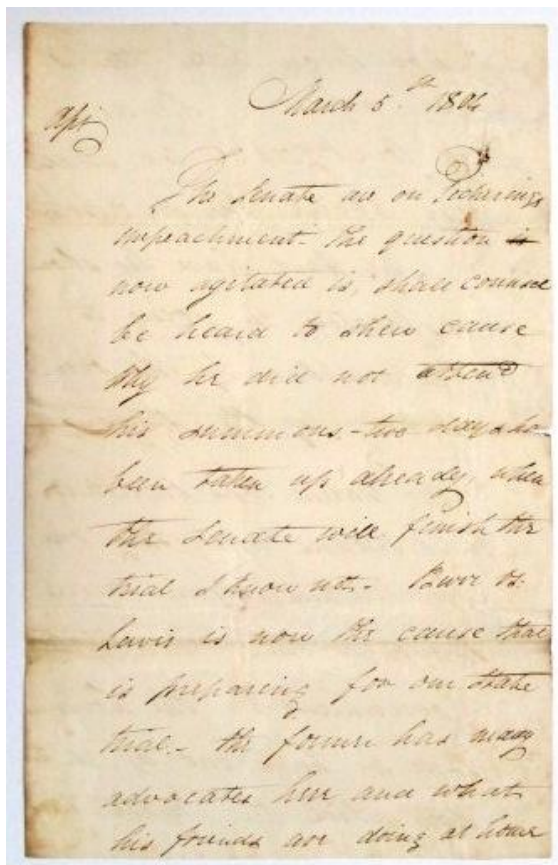 March 5.th 1804
The Senate are on Pickerings
impeachment - the question is
now agitated is, shall counsel
be heard to shew cause
Why he did not attend
his summons. - two days ha
been taken up already, when
the Senate will finish the
trial I know not. - Burr vs.
Lewis is now the cause that
is preparing for our State
trial. - the former has many
advocates here and what
his friends are doing at home